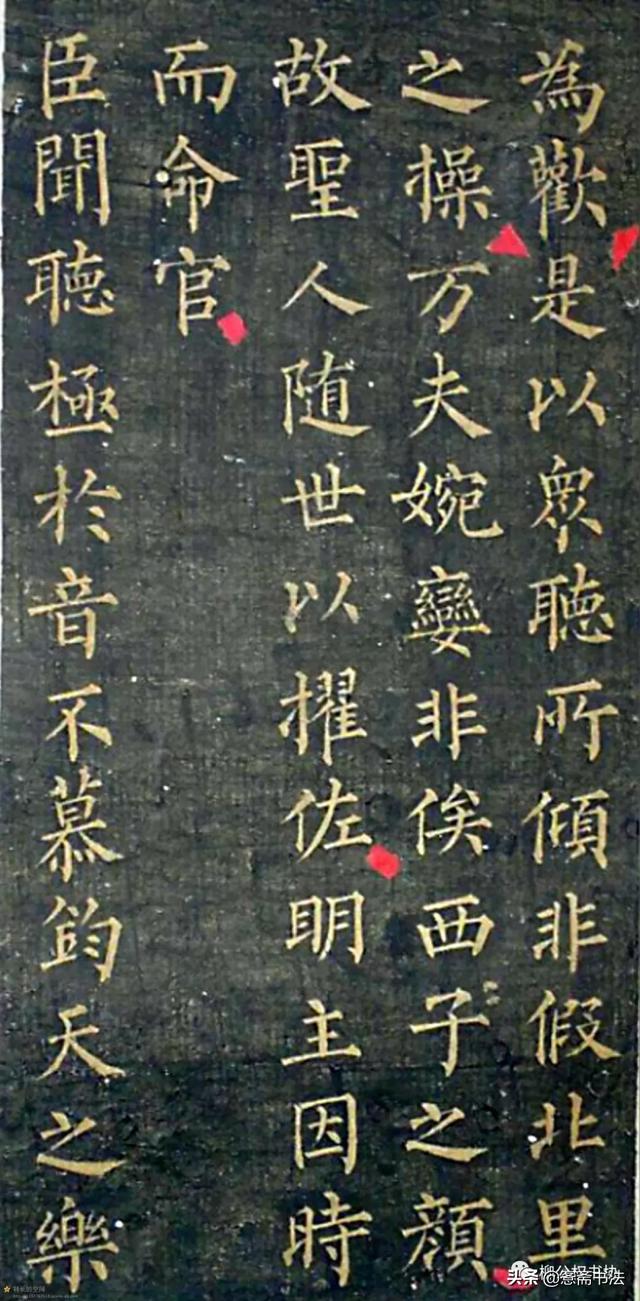 為歡是以眾聽所傾非假北里
之操万夫婉孌非俟西子之顏
故聖人随世以擢佐明主因時
而命官
臣聞聴極於音不慕鈞天之樂
头条@意斋书法